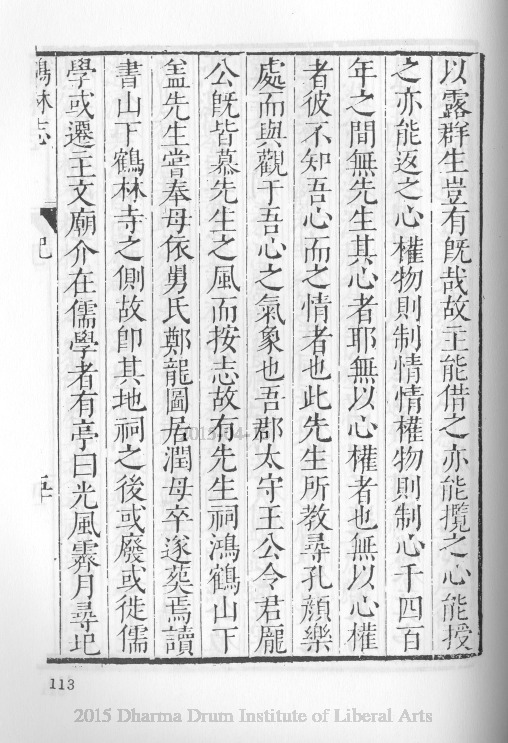 以露群生豈有旣哉故主能借之亦能攬之心能授
之亦能返之心權物則制情情權物則制心千四百
年之間無先生其心者耶無以心權者也無以心權
者彼不知吾心而之情者也此先生所教尋孔顔樂
處而與觀于吾心之氣象也吾郡太守王公令君龎
公旣皆慕先生之風而按志故有先生祠鴻鶴山下
盖先生嘗奉母依舅氏鄭龍圖居潤母卒遂葬焉讀
書山下鶴林寺之側故卽其地祠之後或廢或徙儒
學或遷主文廟介在儒學者有亭曰光風霽月尋圮
鶴林志
記
113
2015 Dharma Drum Institute of Liberal Arts